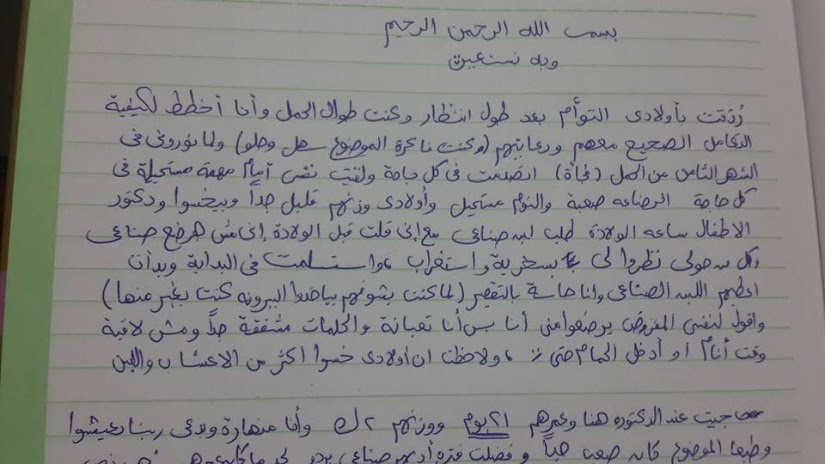 بسم الله الرحمن الرحيم
وبه نستعين
رُزقت بأولادى التوأم بعد طول انتظار وكنت طوال الحمل وأنا أخطط لكيفية
التعامل الصحيح معهم ورعايتهم (وكنت فاكرة الموضوع سهل وحلو) ولما نورونى فى
الشهر الثامن من الحمل (فجأة) اتصدمت فى كل حاجة ولقيت نفسى أمام مهمة مستحيلة فى
كل حاجة الرضاعه صعبة والنوم مستحيل وأولادى وزنهم قليل جداً وبيخسوا ودكتور
الاطفال ساعه الولادة طلب لبن صناعى مع إنى قلت قبل الولادة إنى مش هرضع صناعى
وكل من حولى نظروا لى بسخرية واستغراب ، واستسلمت فى البداية وبدأت
اعطيهم اللبن الصناعى وانا حاسة بالتقصير (لما كنت بشوفهم بياخدوا الببرونه كنت بغير منها)
واقول لنفسى المفروض يرضعوا منى أنا بس أنا تعبانة والحلمات مشققة جداً ومش لاقية
وقت أنام أو أدخل الحمام حتى ، ولاحظنا ان أولادى خسوا اكثر من الاعشاب واللبن
جيت عند الدكتوره هنا وعمرهم ٢١ يوم ووزنهم ٢ ك وأنا منهارة وبدعى ربنا يعيشوا
وطبعا الموضوع كان صعب جداً وفضلت فترة أديهم صناعى